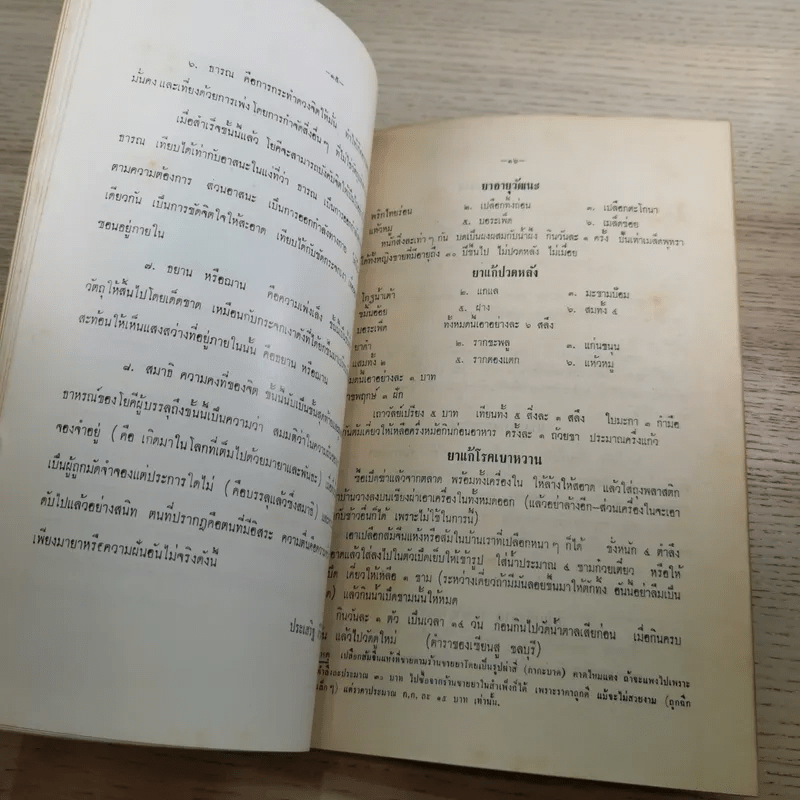 —๑๕—
๖. ธารณ คือการกระทำดวงจิตให้มั่น ทำให้
มั่นคง และเที่ยงด้วยการเพ่ง โดยการกำจัดสิ่งอื่น ๆ ที่ไม่ใช่
เมื่อสำเร็จขั้นนี้แล้ว โยคีจะสามารถบังคับจิตให้
ธารณ เทียบได้เท่ากับอาสนะในแง่ที่ว่า ธารณ เป็นการออกกำลัง
ตามความต้องการ ส่วนอาสนะ เป็นการออกกำลังทางกาย
เดียวกัน เป็นการขัดจิตใจให้สะอาด เทียบได้กับขัดกระจกเงา
ซ่อนอยู่ภายใน
๗. ธยาน หรือฌาน คือความเพ่งเล็ง ขั้นนี้
วัตถุให้สิ้นไปโดยเด็ดขาด เหมือนกับกระจกเงาดังที่ได้ยก
สะท้อนให้เห็นแสงสว่างที่อยู่ภายในนั้น คือธยาน หรือฌาน
๘. สมาธิ ความคงที่ของจิต ขั้นนี้นับเป็นขั้นสุดท้าย
ธาหรณ์ของโยคีผู้บรรลุถึงขั้นนี้เป็นความว่า สมมติว่าในความ
จองจำอยู่ (คือ เกิดมาในโลกที่เต็มไปด้วยมายาและพันธะ)
เป็นผู้ถูกมัดจำจองแต่ประการใดไม่ (คือบรรลุแล้วซึ่งสมาธิ)
ดับไปแล้วอย่างสนิท ตนที่ปรากฏคือตนที่มีอิสระ ความตื่นคือ
เพียงมายาหรือความฝันอันไม่จริงดังนี้
ประเสริฐ
—๑๖—
ยาอายุวัฒนะ
พริกไทยร่อน ๒. เปลือกทิ้งถ่อน ๓. เปลือกตะโกนา
แห้วหมู ๕. บอระเพ็ด ๖. เมล็ดข่อย
หนักสิ่งละเท่า ๆ กัน บดเป็นผงผสมกับน้ำผึ้ง กินวันละ ๑ ครั้ง ปั้นเท่าเมล็ดพุทรา
ได้ทั้งหญิงชายที่มีอายุถึง ๓๐ ปีขึ้นไป ไม่ปวดหลัง ไม่เมื่อย
ยาแก้ปวดหลัง
โกฐน้ำเต้า ๒. แกแล ๓. มะขามป้อม
ขมิ้นอ้อย ๕. ฝาง ๖. สมทั้ง ๕
บอระเพ็ด ทั้งหมดนี้เอาอย่างละ ๖ สลึง
ยาดำ ๒. รากชะพลู ๓. แก่นขนุน
แสมทั้ง ๒ ๕. รากตองแตก ๖. แห้วหมู
หมดนี้เอาอย่างละ ๑ บาท
ราชพฤกษ์ ๓ ฝัก
เถาวัลย์เปรียง ๕ บาท เทียนทั้ง ๕ สิ่งละ ๑ สลึง ใบมะกา ๑ กำมือ
กันต้มเคี่ยวให้เหลือครึ่งหม้อกินก่อนอาหาร ครั้งละ ๑ ถ้วยชา ประมาณครึ่งแก้ว
ยาแก้โรคเบาหวาน
ซื้อเป็ดฆ่าแล้วจากตลาด พร้อมทั้งเครื่องใน ให้ล้างให้สะอาด แล้วใส่ถุงพลาสติก
บ้านวางลงบนเขียงผ่าเอาเครื่องในทั้งหมดออก (แล้วอย่าล้างอีก—ส่วนเครื่องในจะเอา
กับข้าวอื่นก็ได้ เพราะไม่ใช้ในการนี้)
เอาเปลือกส้มจีนแห้งหรือส้มในบ้านเราที่เปลือกหนา ๆ ก็ได้ ชั่งหนัก ๕ ตำลึง
อาดแล้วใส่ลงไปในตัวเป็ดเย็บให้เข้ารูป ใส่น้ำประมาณ ๕ ชามก๋วยเตี๋ยว หรือให้
เป็ด เคี่ยวให้เหลือ ๑ ชาม (ระหว่างเคี่ยวถ้ามีมันลอยขึ้นมาให้ตักทิ้ง อันนี้อย่าลืมเป็น
) แล้วกินน้ำเป็ดชามนั้นให้หมด
กินวันละ ๑ ตัว เป็นเวลา ๑๕ วัน ก่อนกินไปวัดน้ำตาลเสียก่อน เมื่อกินครบ
แล้วไปวัดดูใหม่ (ตำราของเซียนสู ชลบุรี)
เปลือกส้มจีนแห้งที่ขายตามร้านขายยาโดยเป็นรูปผ่าสี่ (กากะบาด) คาดไหมแดง ถ้าจะแพงไปเพราะ
ประมาณ ๓๐ บาท ไปซื้อจากร้านขายยาในสำเพ็งก็ได้ เพราะราคาถูกดี แม้จะไม่สวยงาม (ถูกฉีก
เล็ก ๆ) แต่ราคาประมาณ ก.ก. ละ ๑๕ บาท เท่านั้น.